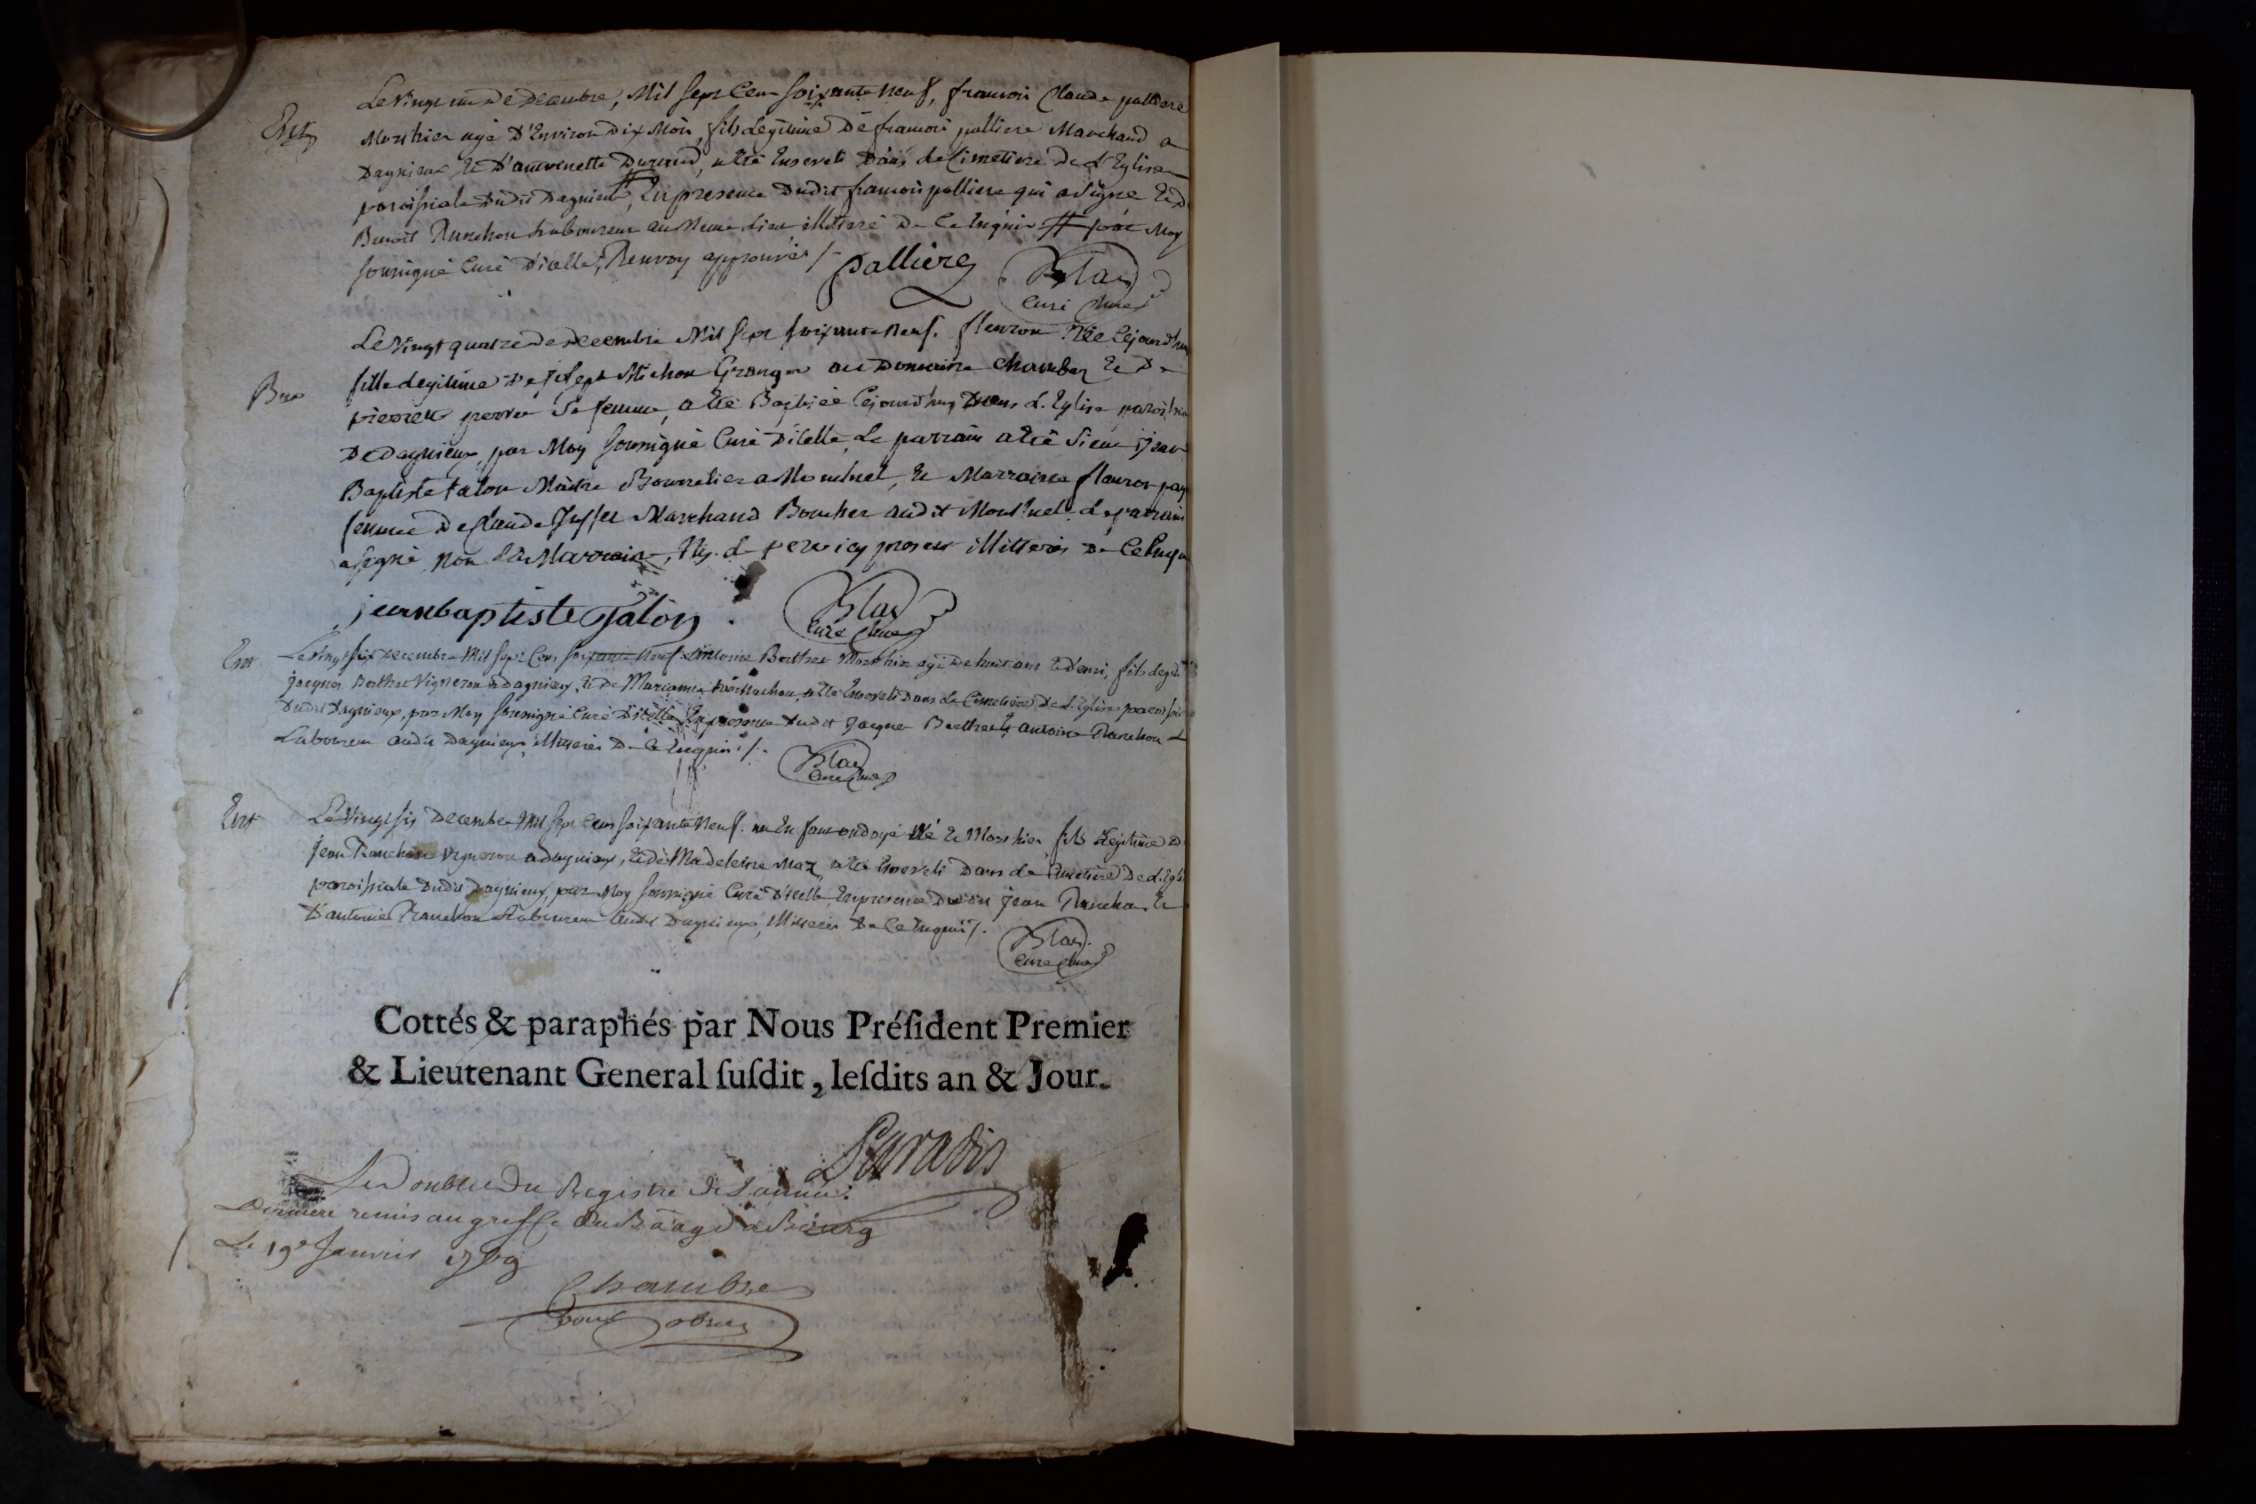 Le vingt un de decembre, Mil sept Cens soixante neuf, francois Claude palliere
Ent
Mort hier agé d'Environ dix Mois, fils legitime de francois palliere Marchand a
dagnieux Et d'antoinette durand, a Eté Enseveli dans le Cimetiere de L'Eglise
paroissiale dudit dagnieux, En presence dudit francois palliere qui a signé Et de
Benoit Planchon Laboureur au Meme lieu illiteré de Ce Enquis # par Moy
soussigné Curé d'icelle, Renvoy approuvé /.
pallière
Blas
Curé
Le vingt quatre de decembre Mil sept soixante neuf. fleuron Née Cejourd'huy
Bap
fille legitime de joseph Michon Granger au Domaine chamber Et de
sa femme, a Eté Baptisée Cejourd'huy dans L'Eglise paroissiale
de dagnieux, par Moy soussigné Curé d'icelle, Le parrain a Eté sieur jean
Baptiste talon Maitre Bourrelier a Montluel, Et Marraine fleuron
femme de Claude Marchand Boucher audit Montluel. Le parrain
a signé non La Marraine, Ny le pere icy present illiterés de Ce Enquis
jean baptiste talon.
Blas
Curé
Ent
Le vingt six decembre Mil sept Cens soixante neuf antoine Berthet Mort hier agé de huit ans Et demi, fils legitime
jacques Berthet Vigneron a dagnieux, Et de Marianne Planchon, a Eté Enseveli dans Le Cimetiere de L'Eglise paroissiale
dudit dagnieux, par Moy soussigné Curé d'icelle En presence dudit jacques Berthet Et antoine Planchon
Laboureur audit dagnieux illiterés de Ce Enquis /.
Blas
Curé
Ent
Le vingt six decembre Mil sept Cens soixante neuf. un Enfant ondoyé Né Et Mort hier fils legitime de
jean Planchon vigneron a dagnieux, Et de Madeleine Maz, a Eté Enseveli dans Le Cimetiere de L'Eglise
paroissiale dudit dagnieux, par Moy soussigné Curé d'icelle, En presence dudit jean Planchon Et
D'antoine Planchon Laboureur audit dagnieux, illiterés de Ce Enquis /.
Blas
Curé
Cottés & paraphés par Nous Préſident Premier
& Lieutenant General ſuſdit, leſdits an & Jour.
Paradis
Le Double du Registre de L'année
Derniere remis au greffe du Baage de Bourg
Le 19e Janvier 1769
Chambre
pour